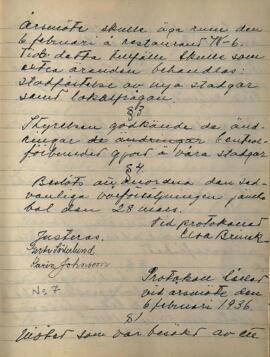 Årsmöte skulle äga rum den
6 februari å restaurant W-6.
Vid detta tillfälle skulle som
extra ärenden behandlas:
stadfästelse av nya stadgar
samt lokalfrågan.
§ 3.
Styrelsen godkände de änd-
ringar de ändringar Central-
förbundet gjort i våra stadgar
§ 4.
Beslöts att anordna den sed-
vanliga vårförsäljningen jämte
bal den 28 mars.
Vid protokollet
Elsa Brunek
Justeras.
Karin Johnsson
Protokoll läst
vid årsmöte den
6 februari 1936.
No 7
§ 1
Mötet som var besökt av ett